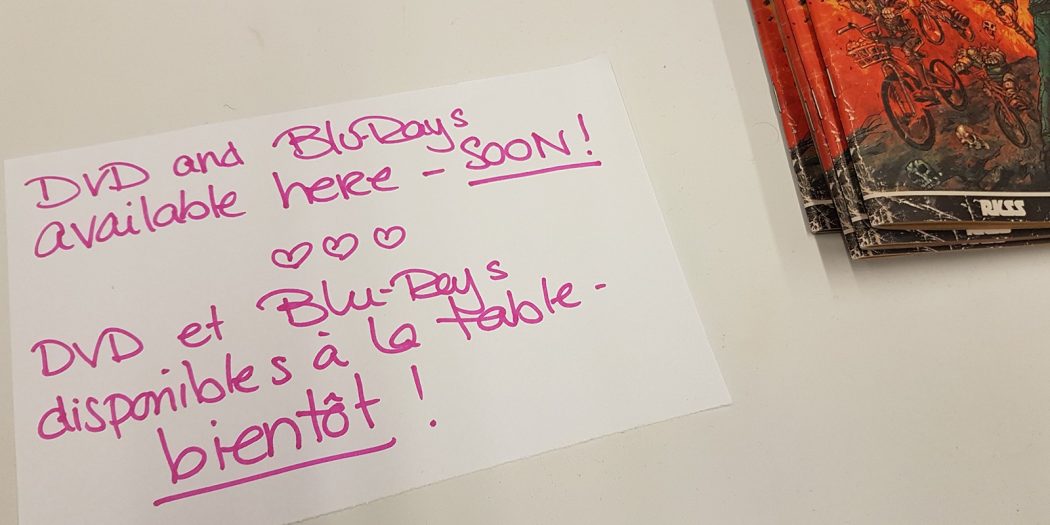 DVD and Blu-Rays
available here - SOON!
♡♡♡
DVD et Blu-Rays
disponibles à la table -
bientôt !
RKSS